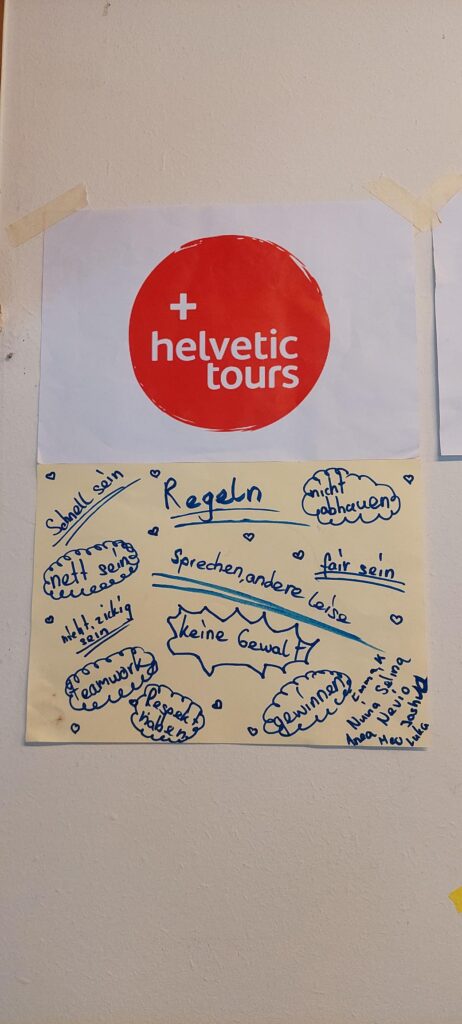 +
helvetic
tours
Schnell sein
Regeln
nicht
abhauen
nett sein
Sprechen, andere leise
fair sein
nicht zickig
sein
keine Gewalt
teamwork
Respekt
haben
gewinnen
Nuna Selina
Anea Nevio
Luka